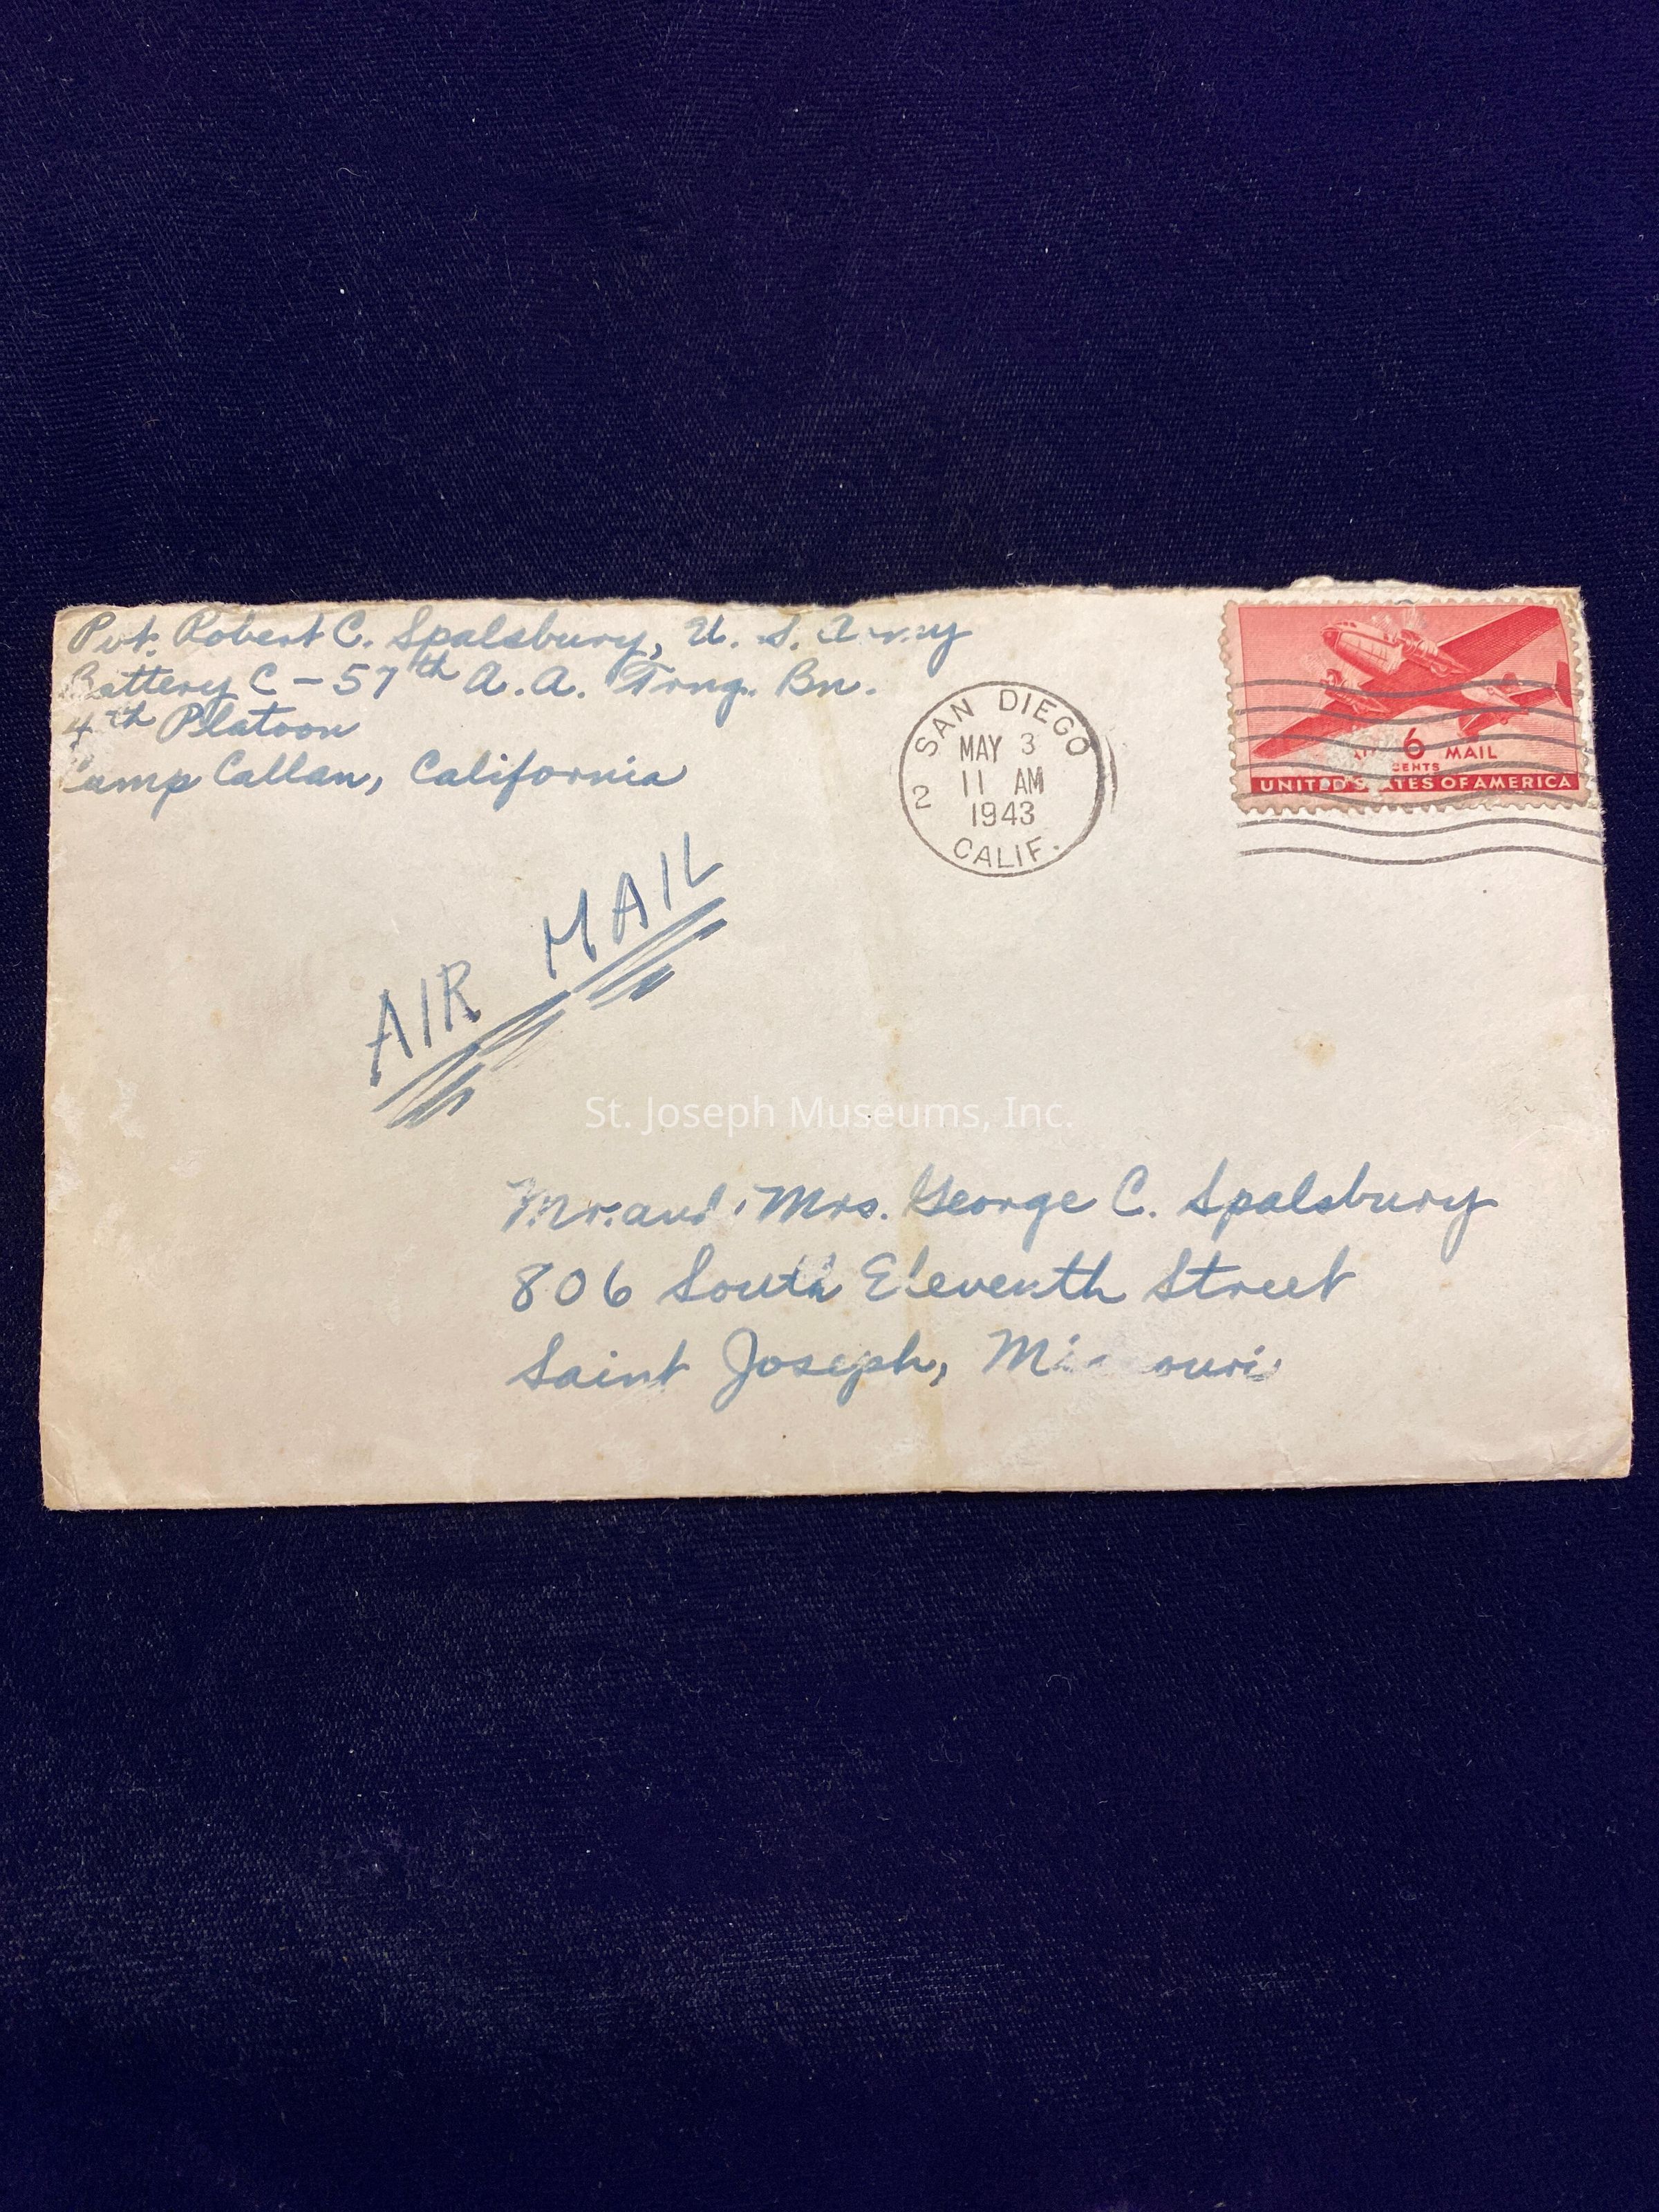 Pvt. Robert C. Spalsbury, U. S. Army
Battery C - 57th A.A. Trng. Bn.
4th Platoon
Camp Callan, California
SAN DIEGO
MAY 3
11 AM
1943
2
CALIF.
AIR 6 MAIL
CENTS
UNITED STATES OF AMERICA
AIR MAIL
St. Joseph Museums, Inc.
Mr. and Mrs. George C. Spalsbury
806 South Eleventh Street
Saint Joseph, Missouri